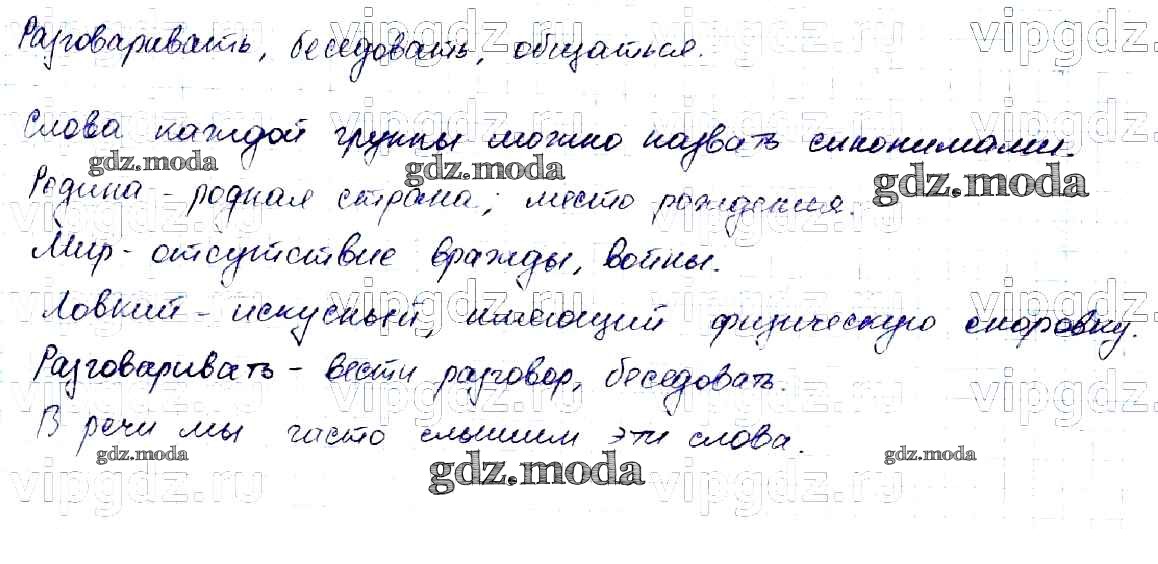 Разговаривать, беседовать, общаться.
Слова каждой группы можно назвать синонимами.
Родина - родная страна; место рождения.
Мир - отсутствие вражды, войны.
Ловкий - искусный, имеющий физическую сноровку.
Разговаривать - вести разговор, беседовать.
В речи мы часто слышим эти слова.
gdz.moda
vipgdz.ru